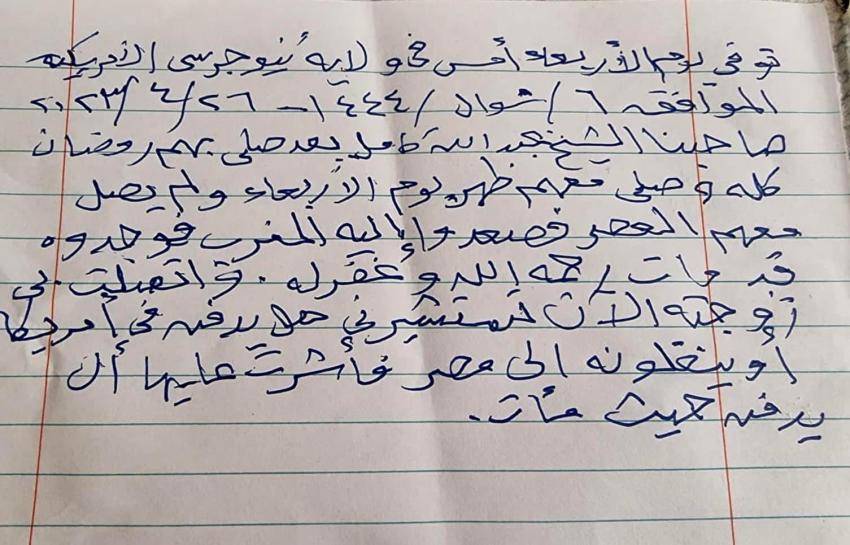 توفي يوم الأربعاء أمس في ولاية نيوجرسى الأمريكيه
الموافقه ٦/شوال/١٤٤٤ - ٢٦/٤/٢٠٢٣
صاحبنا الشيخ عبد الله كامل بعد صلى بهم رمضان
كله وصلى معهم ظهر يوم الأربعاء ولم يصل
معهم العصر فصعدوا إليه المغرب فوجدوه
قد مات رحمه الله وغفر له . واتصلت بي
زوجته الآن تستشيرني هل يدفن في أمريكا
أو ينقلونه الى مصر فأشرت عليها أن
يدفن حيث مات.